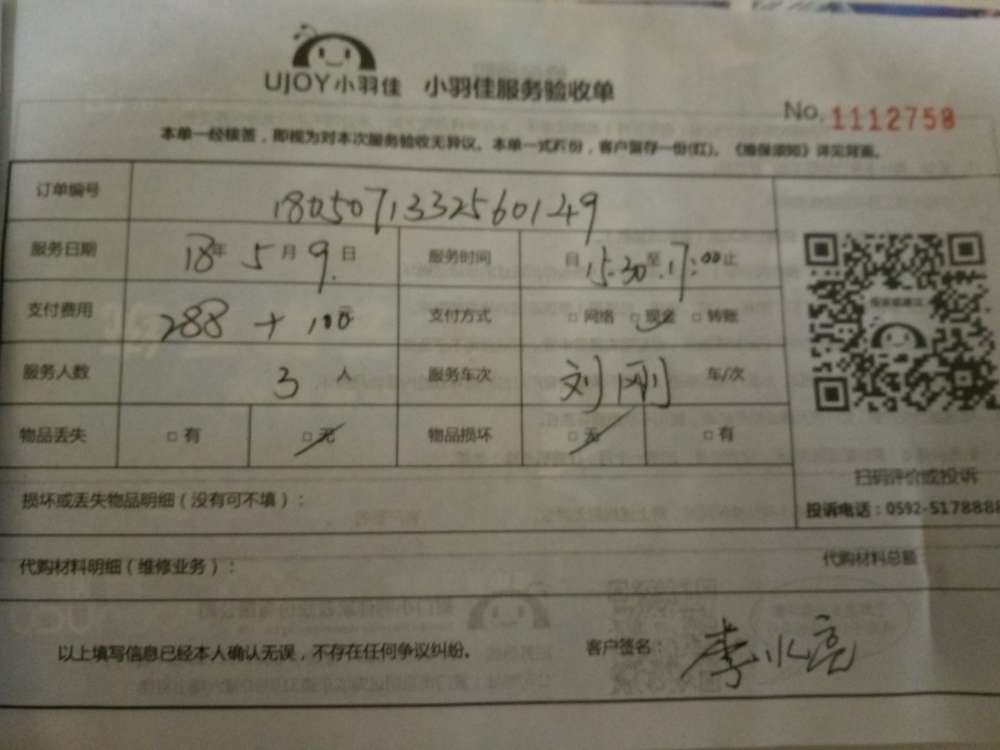 UJOY小羽佳 小羽佳服务验收单
No. 1112758
本单一经核签，即视为对本次服务验收无异议。本单一式两份，客户留存一份(红)。《维保须知》详见背面。
订单编号 180507133256014 9
服务日期 18年 5月 9.日 服务时间 自15.30至17:00止
支付费用 288 + 100元 支付方式 □网络 □现金 □转账
服务人数 3人 服务车次 刘刚 车/次
物品丢失 □有 □无 物品损坏 □无 □有
扫码评价或投诉
损坏或丢失物品明细（没有可不填）：
投诉电话：0592-5178888
代购材料明细（维修业务）： 代购材料总额
以上填写信息已经本人确认无误，不存在任何争议纠纷。 客户签名：